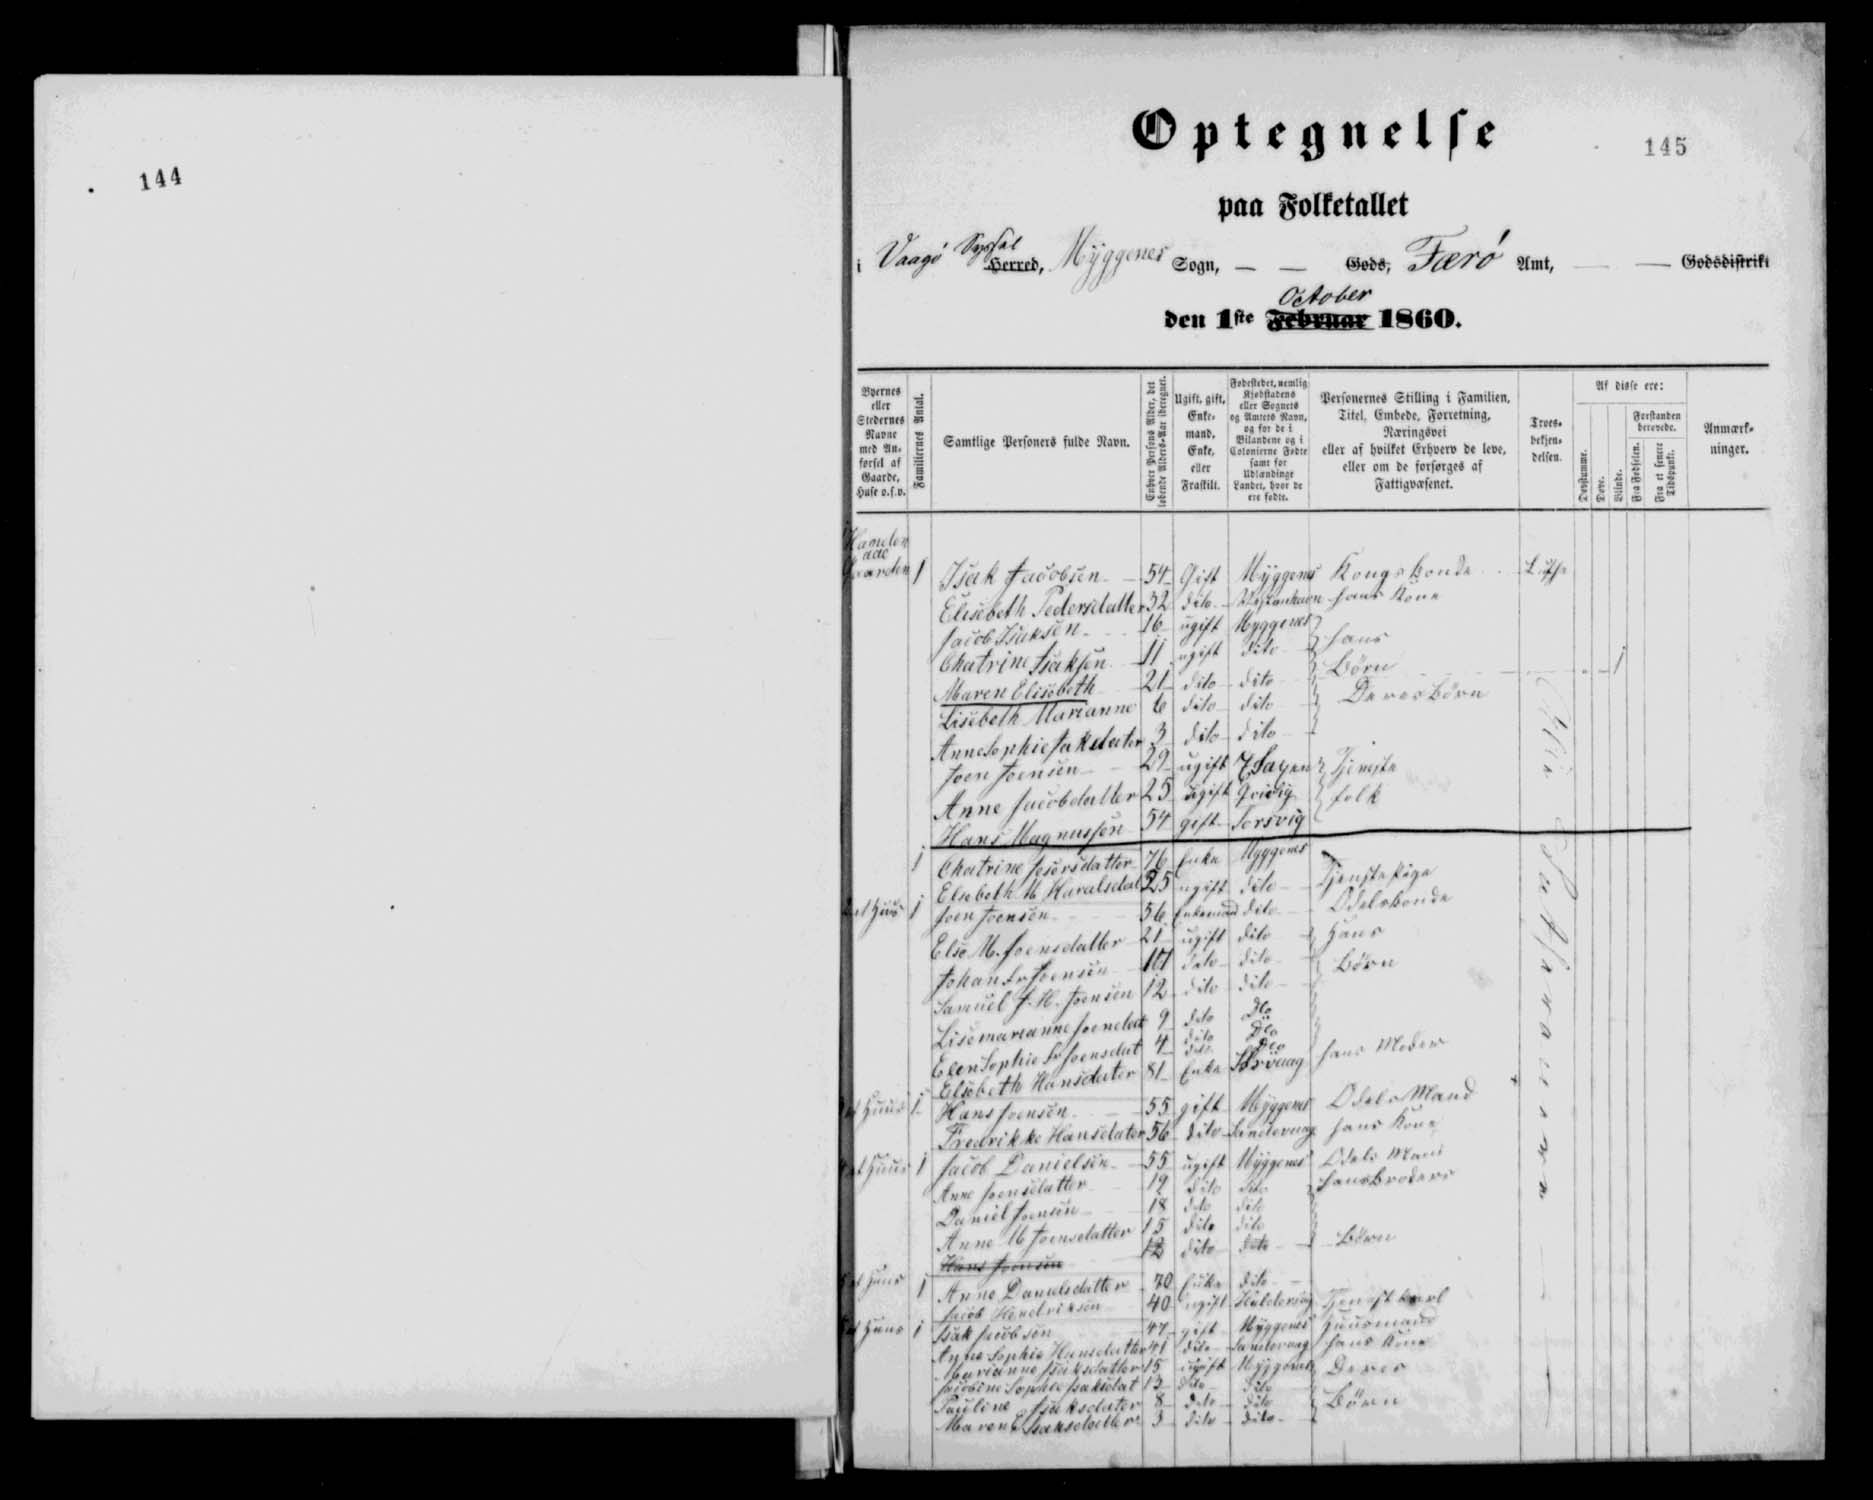 144
Optegnelse
145
paa Folketallet
i Vaagö Syssel Herred, Myggenes Sogn, — — Gods, Færö Amt, — — Godsdistrikt
October
den 1ste Februar 1860.
Byernes eller Stedernes Navne med Anførsel af Gaarde, Huse o.s.v.
Familiernes Antal.
Samtlige Personers fulde Navn.
Enhver Persons Alder, det løbende Alders-Aar iberegnet.
Ugift, gift, Enkemand, Enke, eller Fraskilt.
Fødestedet, nemlig Kjøbstadens eller Sognets og Amtets Navn, og for de i Bilandene og i Colonierne Fødte samt for Udlændinge Landet, hvor de ere fødte.
Personernes Stilling i Familien, Titel, Embede, Forretning, Næringsvei eller af hvilket Erhverv de leve, eller om de forsørges af Fattigvæsenet.
Troesbekjendelsen.
Af disse ere:
Døvstumme.
Døve.
Blinde.
Forstanden berøvede.
Fra Fødselen.
Fra et senere Tidspunkt.
Anmærkninger.
Gaarden 1 Isak Jacobsen 54 Gift Myggenes Kongsbonde
Elisebeth Pedersdatter 32 dito hans Kone
Jacob Isaksen 16 ugift Myggenes hans
Chatrine Isaksen 11 ugift dito Börn
Maren Elisebeth 21 dito dito 1
Lisebeth Marianne 6 dito dito Deres Börn
Anne Sophie Isaksdater 3 dito dito
Joen Joensen 29 ugift Tjeneste
Anne Jacobdatter 25 ugift Qvivig folk
Hans Magnussen 54 gift Torsvig
1 Chatrine Joensdatter 76 Enke Myggenes
Elsebeth M 25 ugift dito Tjenestepige
Huus 1 Joen Joensen 56 Enkemand dito Odelsbonde
Else M. Joensdatter 21 ugift dito Hans
Johan Fr Joensen dito dito Börn
Samuel J. H. Joensen 12 dito dito
Lisemarianne Joensdat 9 dito Dto
Elen Sophie Fr Joensdat 4 dito Dto
Elsebeth Hansdater 81 Enke Sörvaag hans Moder
Huus 1 Hans Joensen 55 gift Myggenes Odels Mand
Fredrikke Hansdater 56 dito Sandevaag hans Kone
Huus 1 Jacob Danielsen 55 ugift Myggenes Odels Mand
Anne Joensdatter 19 dito dito hans Broders
Daniel Joensen 18 dito dito
Anne M Joensdatter 15 dito dito
Hans Joensen 12 dito dito Börn
Huus 1 Anne Danielsdatter 70 Enke dito
Jacob Hendriksen 40 ugift Tjenestkarl
Huus 1 Isak Jacobsen 47 gift Myggenes Huusmand
Anne Sophie Hansdatter 41 dito Sandevaag hans Kone
Marianne Isaksdatter 15 ugift Myggenes Deres
Jacobine Sophie Isaksdat 13 dito dito
Pauline Isaksdater 8 dito dito Börn
Maren E Isaksdatter 3 dito dito